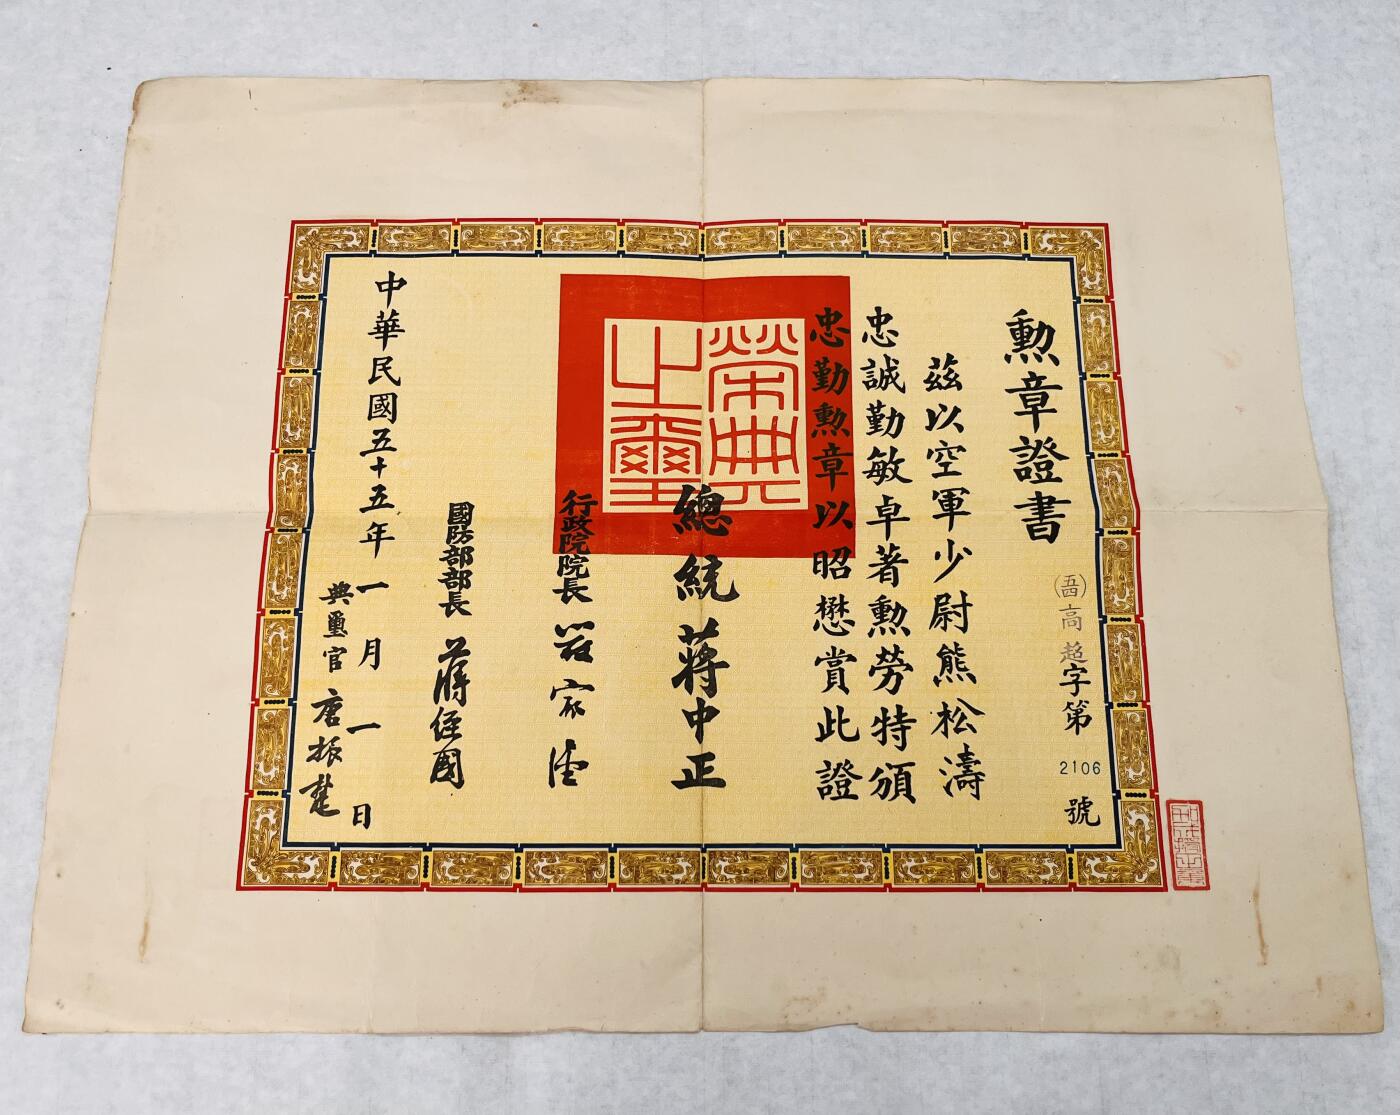 勲章證書
高超字第2106號
茲以空軍少尉熊松濤
忠誠勤敏卓著勲勞特頒
忠勤勲章以昭懋賞此證
榮典之璽
總統 蔣中正
行政院院長 嚴家淦
國防部部長 蔣經國
中華民國五十五年一月一日
典璽官 唐振楚